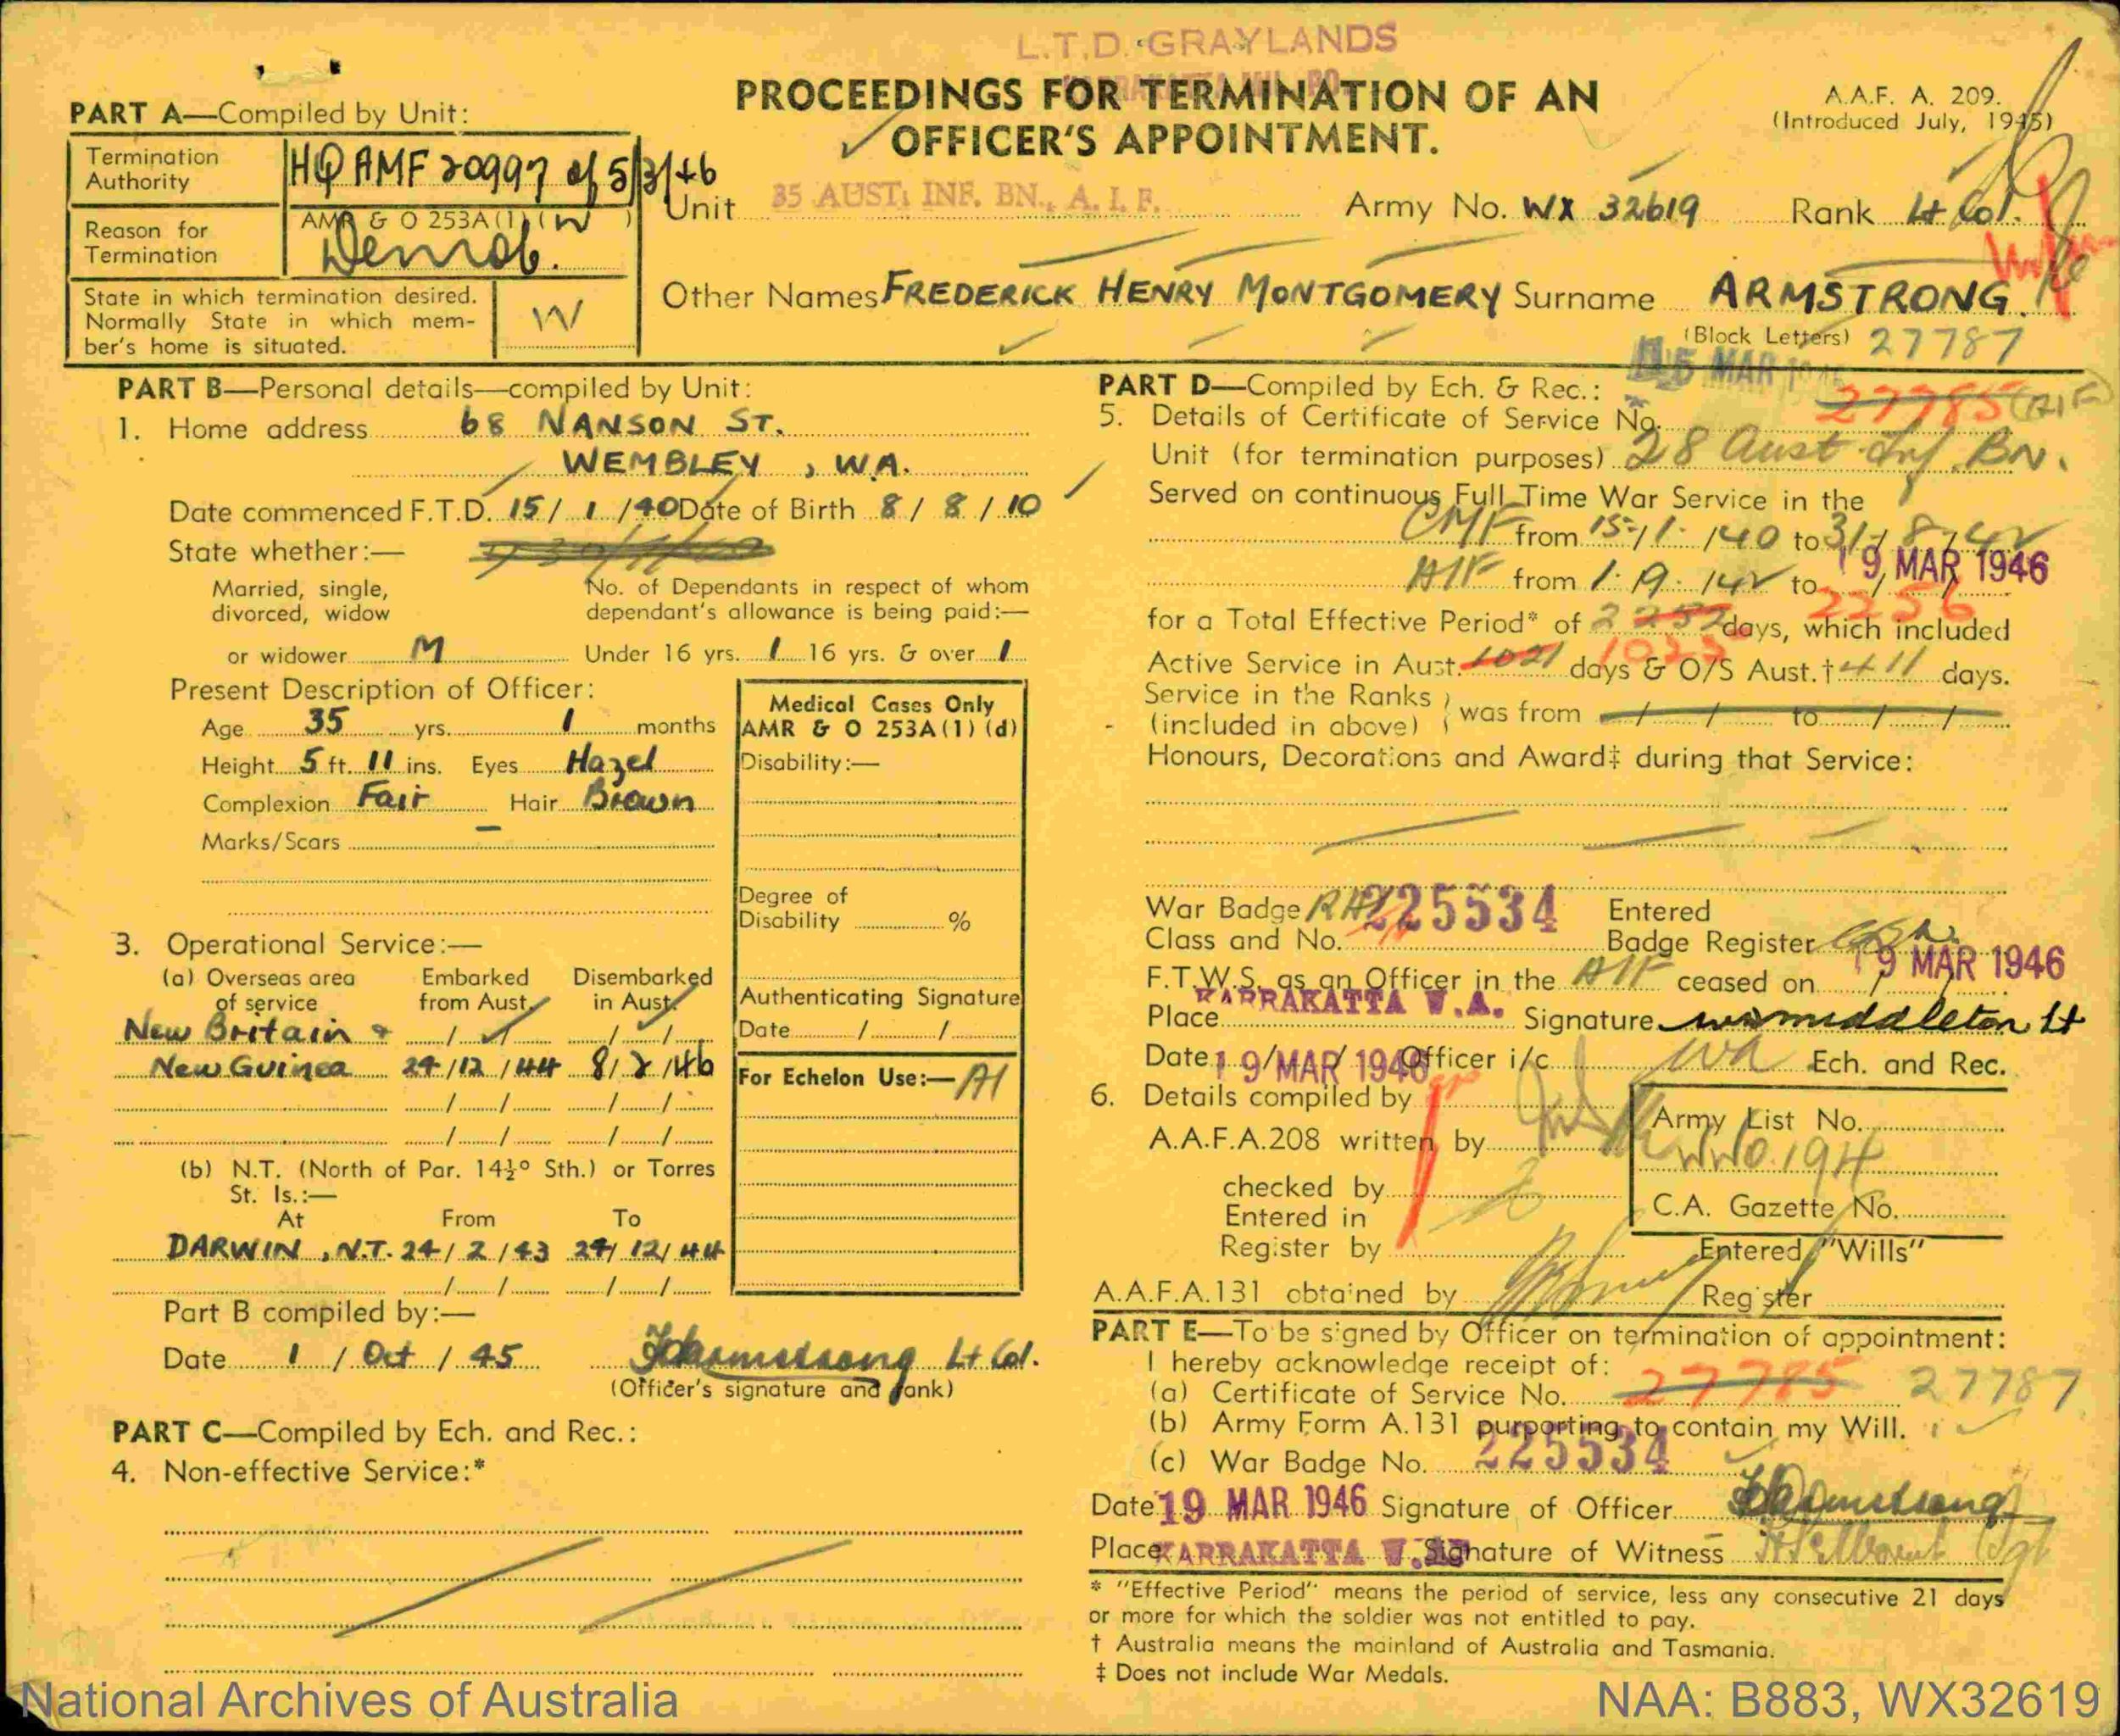 L.T.D. GRAYLANDS
PROCEEDINGS FOR TERMINATION OF AN
OFFICER'S APPOINTMENT.
A.A.F. A. 209.
(Introduced July, 1945)
PART A—Compiled by Unit:
Termination Authority HQ AMF 20997 of 5/3/46
Reason for Termination AMR & O 253A(1) (W)
Demob.
State in which termination desired.
Normally State in which mem-
ber's home is situated. W
Unit 35 AUST. INF. BN., A.I.F. Army No. WX 32619 Rank Lt Col.
Other Names FREDERICK HENRY MONTGOMERY Surname ARMSTRONG.
(Block Letters) 27787
PART B—Personal details—compiled by Unit:
1. Home address 68 NANSON ST.
WEMBLEY, W.A.
Date commenced F.T.D. 15/1/40 Date of Birth 8/8/10
State whether:—
Married, single,
divorced, widow
or widower M
No. of Dependants in respect of whom
dependant's allowance is being paid:—
Under 16 yrs. 1 16 yrs. & over 1
Present Description of Officer:
Age 35 yrs. 1 months
Height 5 ft. 11 ins. Eyes Hazel
Complexion Fair Hair Brown
Marks/Scars –
Medical Cases Only
AMR & O 253A(1) (d)
Disability:—
Degree of
Disability %
Authenticating Signature
Date / /
For Echelon Use:— A1
3. Operational Service:—
(a) Overseas area
of service
Embarked
from Aust.
Disembarked
in Aust.
New Britain & / / / /
New Guinea 24/12/44 8/2/46
/ / / /
/ / / /
(b) N.T. (North of Par. 14½° Sth.) or Torres
St. Is.:—
At From To
DARWIN, N.T. 24/2/43 24/12/44
/ / / /
Part B compiled by:—
Date 1 / Oct / 45 Armstrong Lt Col.
(Officer's signature and rank)
PART C—Compiled by Ech. and Rec.:
4. Non-effective Service:*
PART D—Compiled by Ech. & Rec.:
5. Details of Certificate of Service No. 27785 (AIF)
Unit (for termination purposes) 28 Aust Inf. BN.
Served on continuous Full Time War Service in the
CMF from 15/1/40 to 31/8/42
AIF from 1/9/42 to 19 MAR 1946
for a Total Effective Period* of 2256 days, which included
Active Service in Aust. 1021 days & O/S Aust.† 411 days.
Service in the Ranks
(included in above) was from / / to / /
Honours, Decorations and Award‡ during that Service:
War Badge
Class and No. RAS 225534
Entered
Badge Register
F.T.W.S. as an Officer in the AIF ceased on 19 MAR 1946
Place KARRAKATTA W.A. Signature Middleton Lt
Date 19/MAR/1946 Officer i/c WA Ech. and Rec.
6. Details compiled by
A.A.F.A.208 written by
checked by
Entered in
Register by
Army List No.
C.A. Gazette No.
Entered "Wills"
A.A.F.A.131 obtained by Register
PART E—To be signed by Officer on termination of appointment:
I hereby acknowledge receipt of:
(a) Certificate of Service No. 27785 27787
(b) Army Form A.131 purporting to contain my Will.
(c) War Badge No. 225534
Date 19 MAR 1946 Signature of Officer Armstrong
Place KARRAKATTA W.A. Signature of Witness Sgt
* "Effective Period" means the period of service, less any consecutive 21 days
or more for which the soldier was not entitled to pay.
† Australia means the mainland of Australia and Tasmania.
‡ Does not include War Medals.
National Archives of Australia
NAA: B883, WX32619